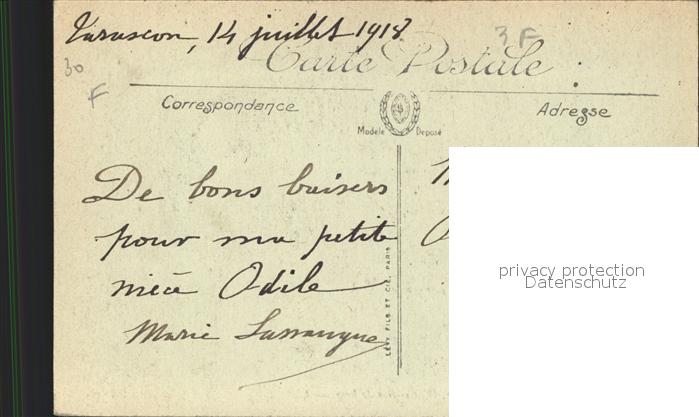 Tarascon, 14 juillet 1918
3F
Carte Postale
30
F
Correspondance
Adresse
Modèle Déposé
De bons baisers
pour ma petite
nièce Odile
Marie
LÉVY FILS ET CIE, PARIS
privacy protection
Datenschutz